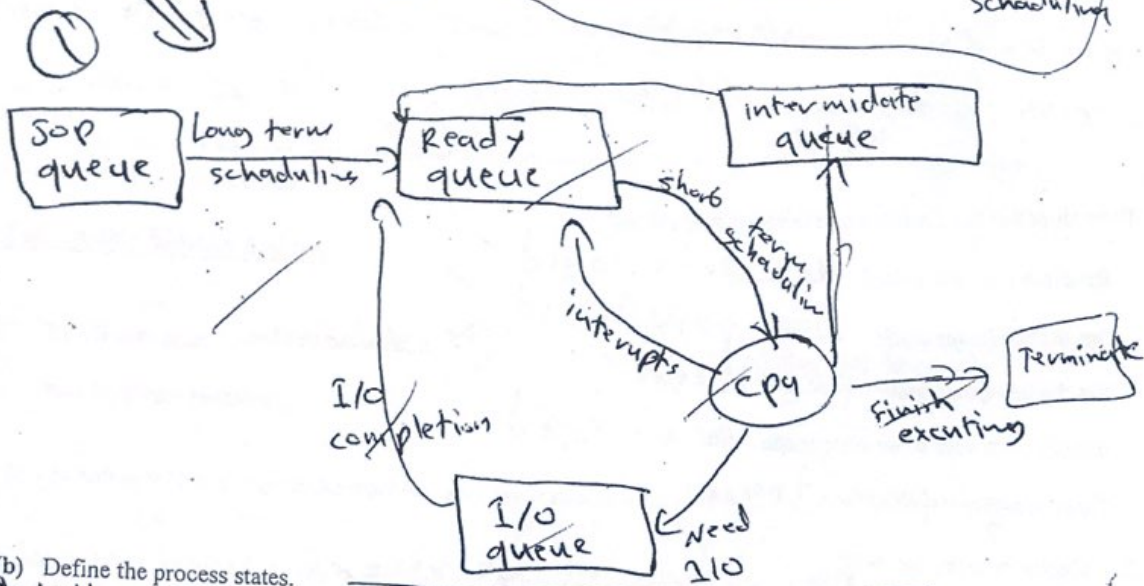 schaduling
1
Jop
queue
Long term
schaduling
Ready
queue
intermidate
queue
short
term
schadulin
interupts
cpu
Terminate
Finish
excuting
I/O
completion
I/O
queue
Need
I/O
(b) Define the process states.